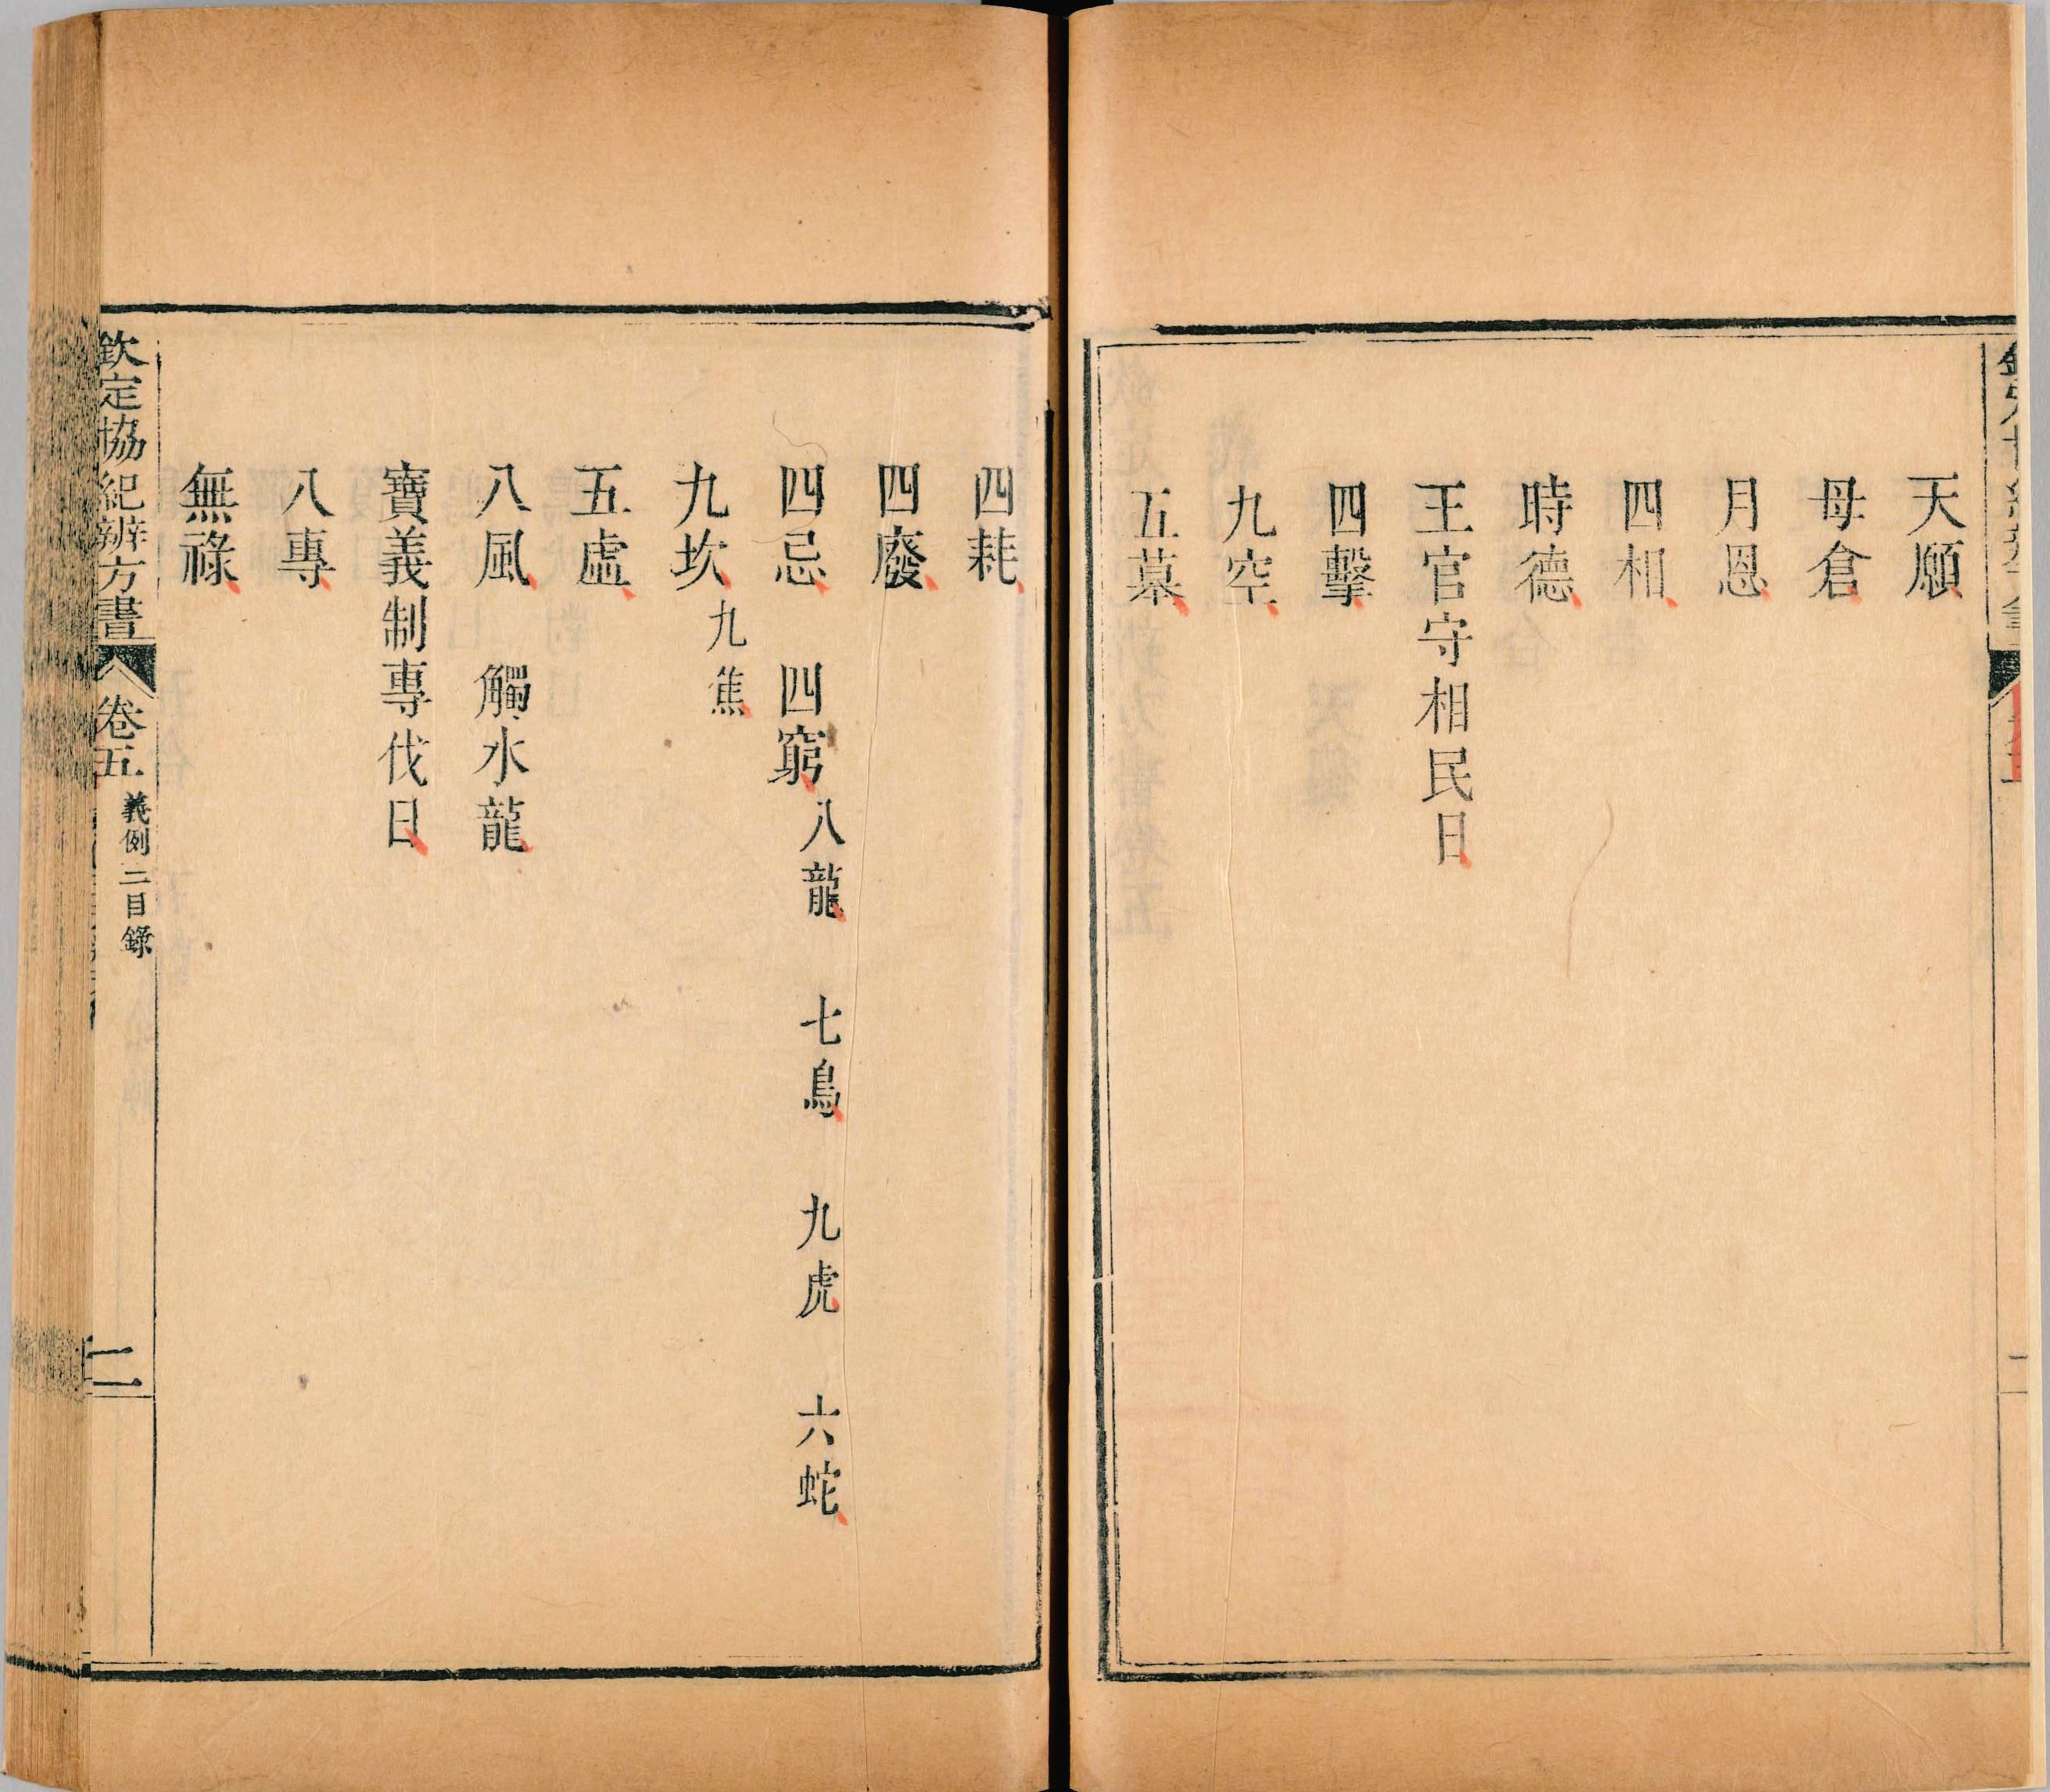 天願
母倉
月恩
四相
時德
王官守相民日
四擊
九空
五墓
四耗
四廢
四忌 四窮 八龍 七鳥 九虎 六蛇
九坎 九焦
五虛
八風 觸水龍
寶義制專伐日
八專
無祿
欽定協紀辨方書 卷五 義例二目錄 二